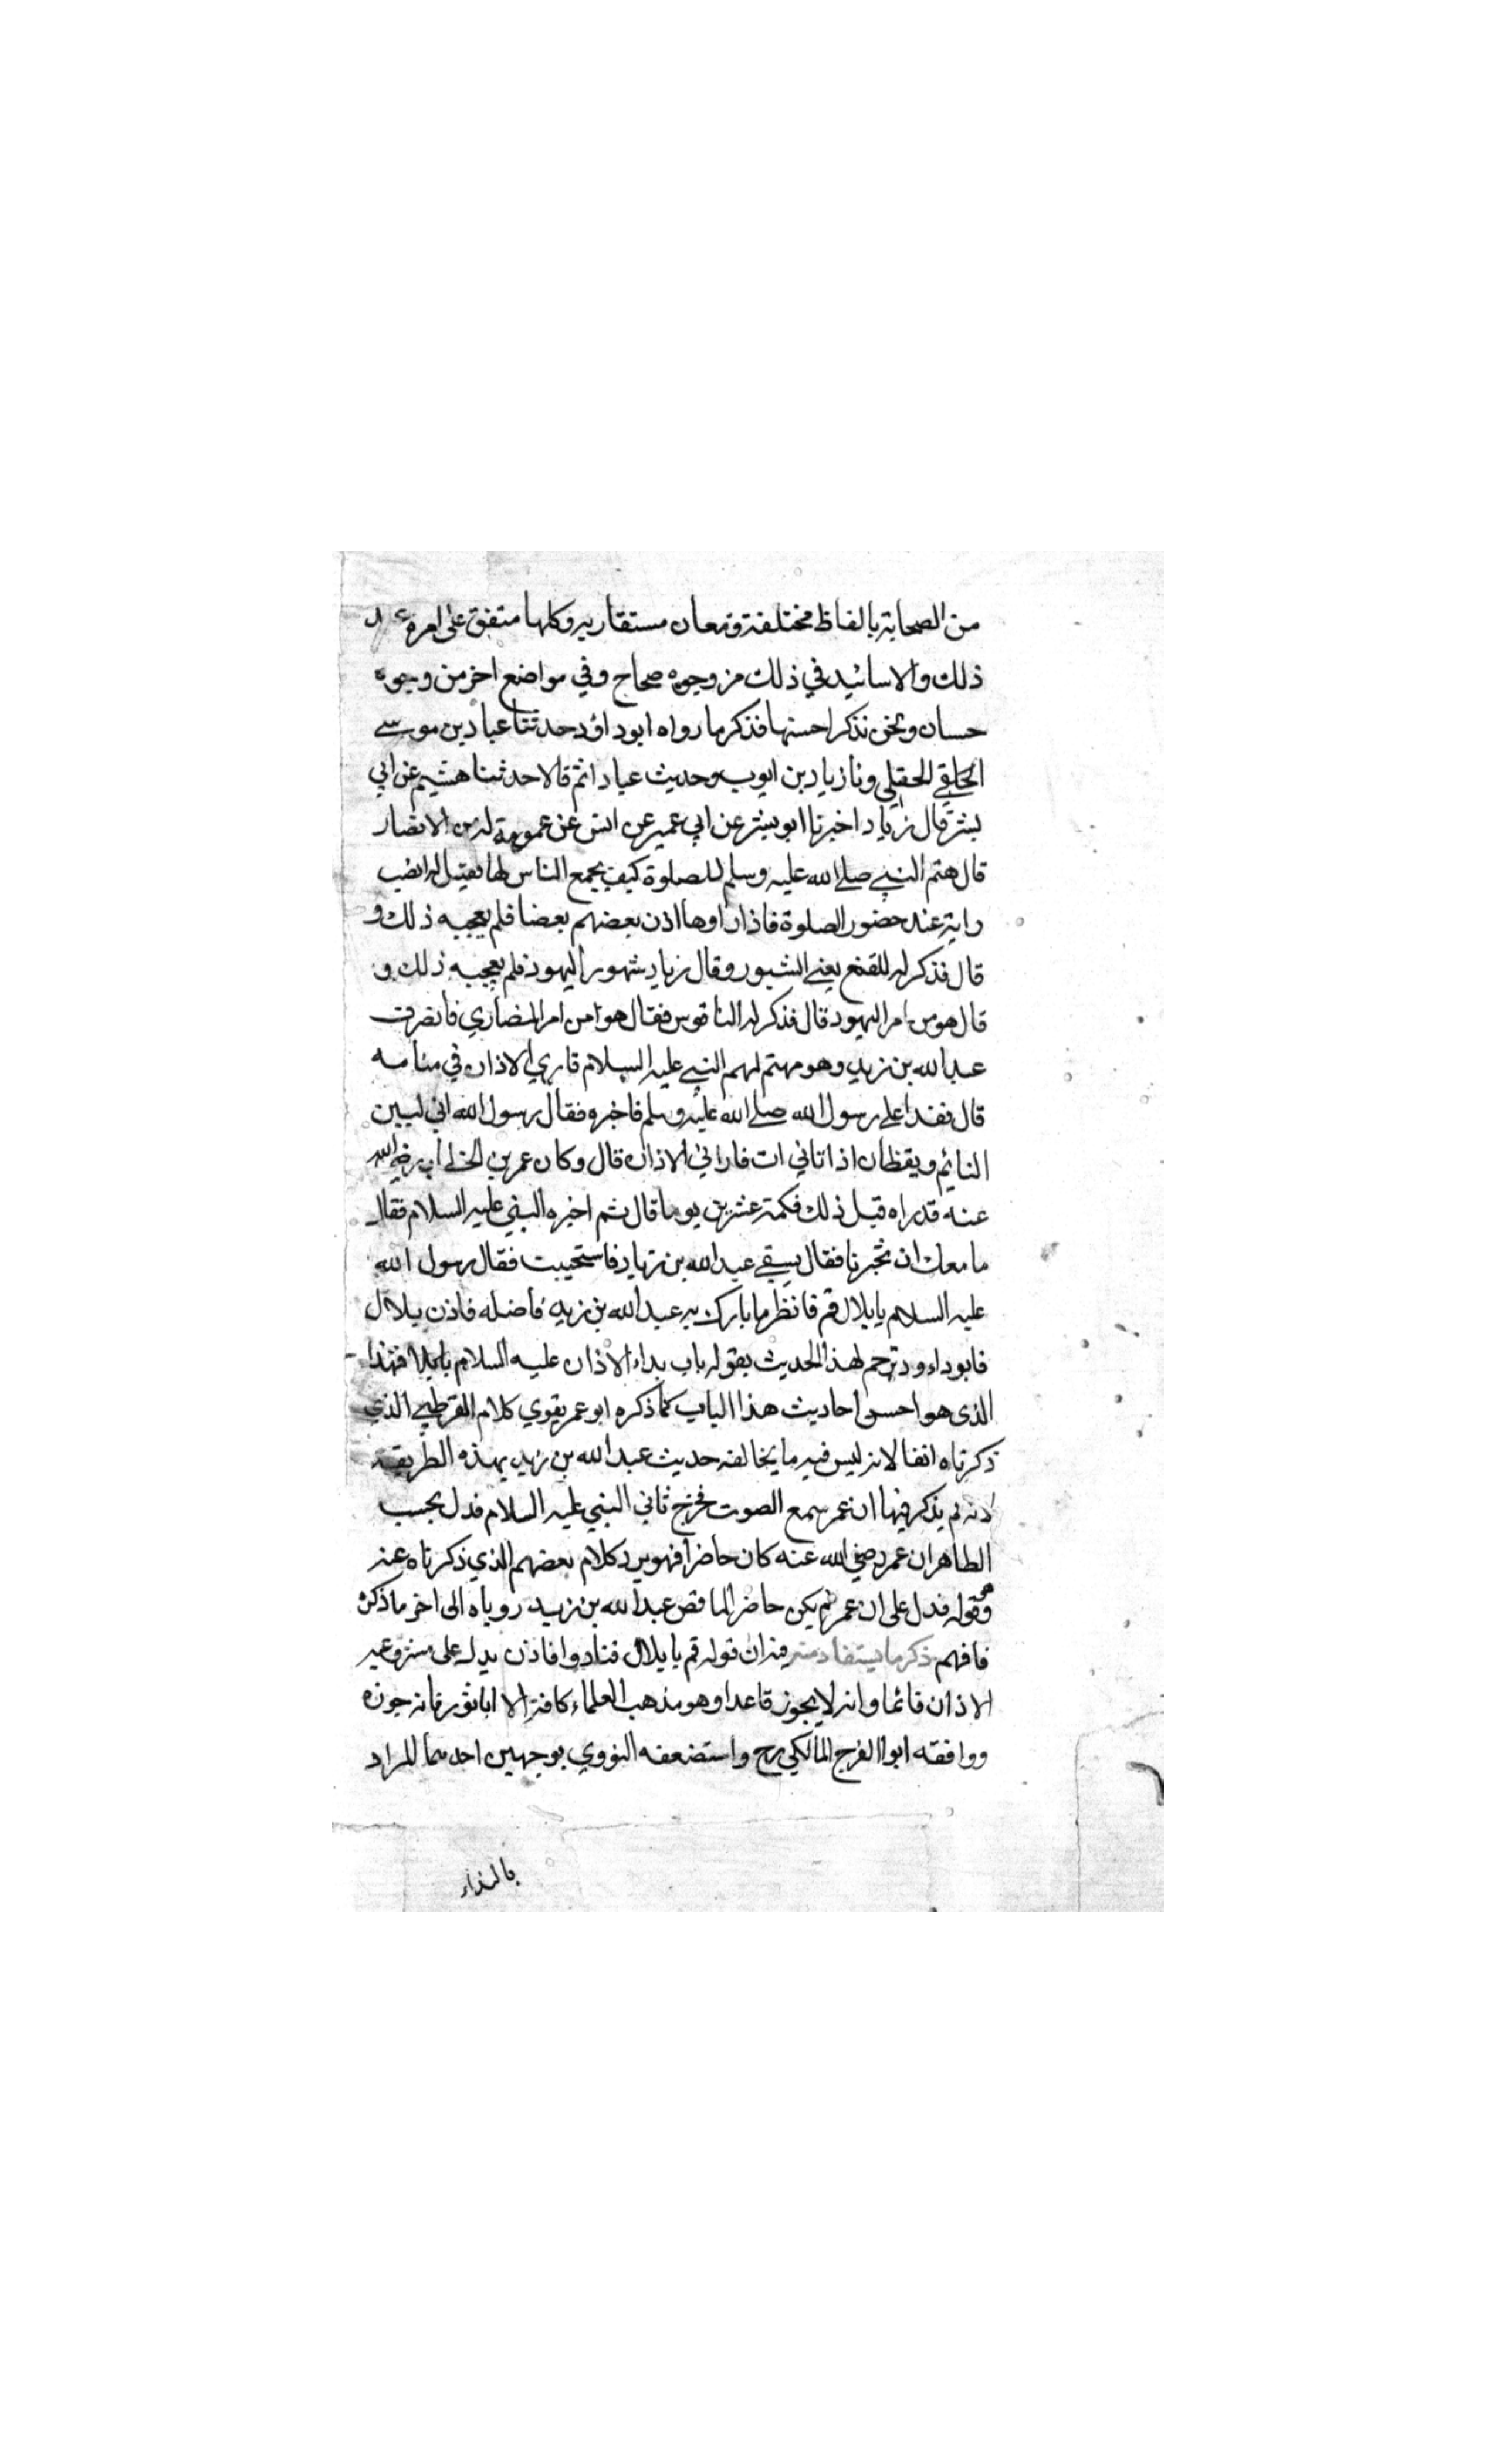 من الصحابة بالفاظ مختلفة ومعان مستقاربه وكلها متفق على امره ع م
ذلك والاسانيد في ذلك من وجوه صحاح وفي مواضع اخر من وجوه
حسان ونحن نذكر احسنها فذكر ما رواه ابو داؤد حدثنا عباد بن موسى
الختلي ونا زياد بن ايوب وحديث عباد اتم قالا حدثنا هشيم عن ابي
بشر قال زياد اخبرنا ابو بشر عن ابي عمير عن انس عن عمومة له من الانصار
قال هتم النبي صلى الله عليه وسلم للصلوة كيف يجمع الناس لها فقيل له انصب
راية عند حضور الصلوة فاذا راوها اذن بعضهم بعضا فلم يعجبه ذلك و
قال فذكر له للقنع يعني الشبور وقال زياد شهور اليهود فلم يعجبه ذلك و
قال هو من امر اليهود قال فذكر له الناقوس فقال هو من امر النصاري فانصرف
عبد الله بن زيد وهو مهتم لهم النبي عليه السلام فاري الاذان في منامه
قال فغدا على رسول الله صلى الله عليه وسلم فاخبره فقال رسول الله اني لبين
النايم ويقظان اذا تاني ات فاراني الاذان قال وكان عمر بن الخطاب رضي الله
عنه قد راه قبل ذلك فكمته عشرين يوما قال ثم اخبره النبي عليه السلام فقال
ما معك ان تخبرنا فقال سبقي عبد الله بن زياد فاستحييت فقال رسول الله
عليه السلام يا بلال قم فانظر ما بارك به عبد الله بن زيد فافعله فاذن بلال
فابو داود ترجم لهذا الحديث بقوله باب بداء الاذان عليه السلام يا بلا فهذا
الذى هو احسن احاديث هذا الباب كما ذكره ابو عمر يقوي كلام القرطبي الذي
ذكرناه انفا لانه ليس فيه ما يخالفه حديث عبد الله بن زيد بهذه الطريقة
لانه لم يذكر فيها ان عمر سمع الصوت فخرج ثاني النبي عليه السلام فدل بحسب
الظاهر ان عمر رضي الله عنه كان حاضرا فهو يرد كلام بعضهم الذي ذكرناه عنه
وهو قوله فدل على ان عمر لم يكن حاضرا لما قص عبد الله بن زيد روياه الى اخر ما ذكره
فافهم ذكر ما يستفاد منه فيه ان قوله قم يا بلال فنادوا فاذن يدل على مشروعيه
الاذان قائما وانه لا يجوز قاعدا وهو مذهب العلماء كافة الا ابا ثور فانه جوزه
ووافقه ابوا الفرج المالكي رح واستضعفه النووي بوجهين احدهما المراد
بالنداء